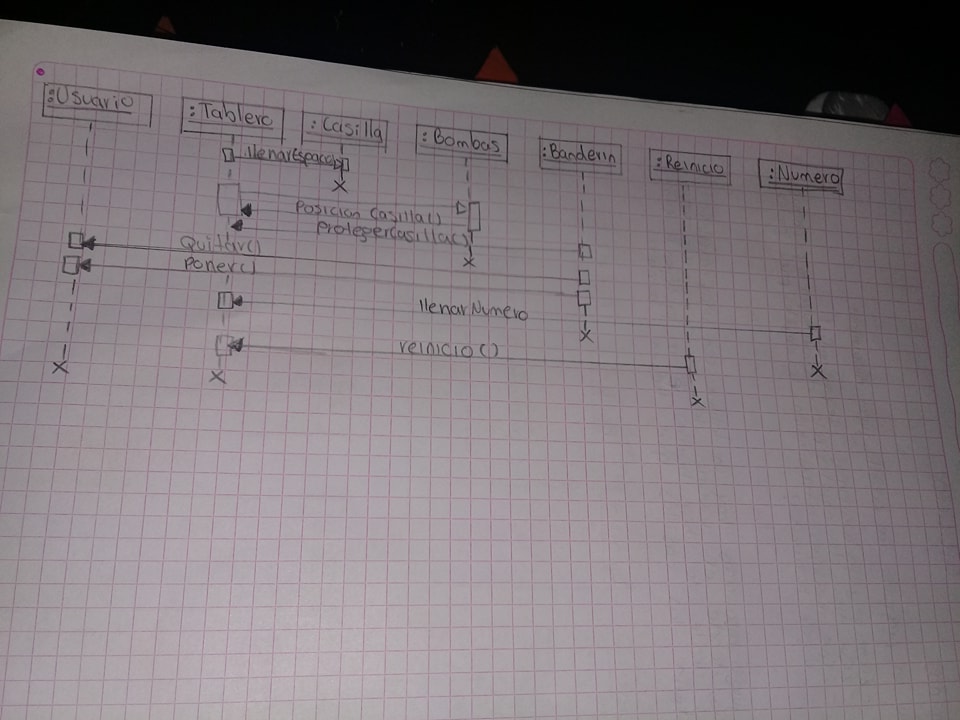 :Usuario
:Tablero
:Casilla
:Bombas
:Banderin
:Reinicio
:Numero
llenarEspacio
Posicion Casilla()
protegerCasilla()
Quitar()
Poner()
llenarNumero
reinicio()